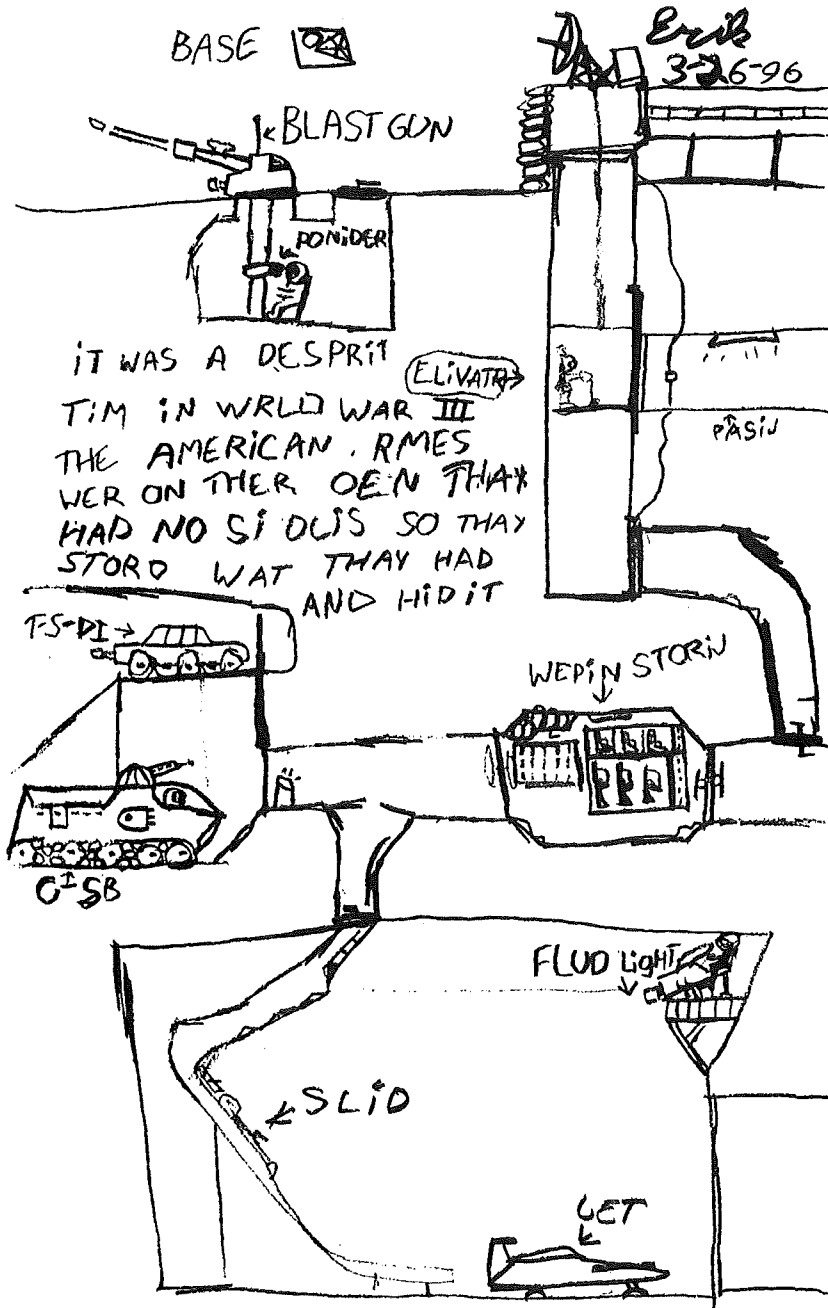 BASE
Erik
3-26-96
BLAST GUN
PONiDER
iT WAS A DESPRiT
TiM iN WRLD WAR III
THE AMERICAN . RMES
WER ON THER OEN THAY
HAD NO Si DLIS SO THAY
STORD WAT THAY HAD
AND HiD iT
ELiVATR
PASiJ
TS-DI
WEPiN STORiN
CISB
FLUD LigHT
SLiD
JET